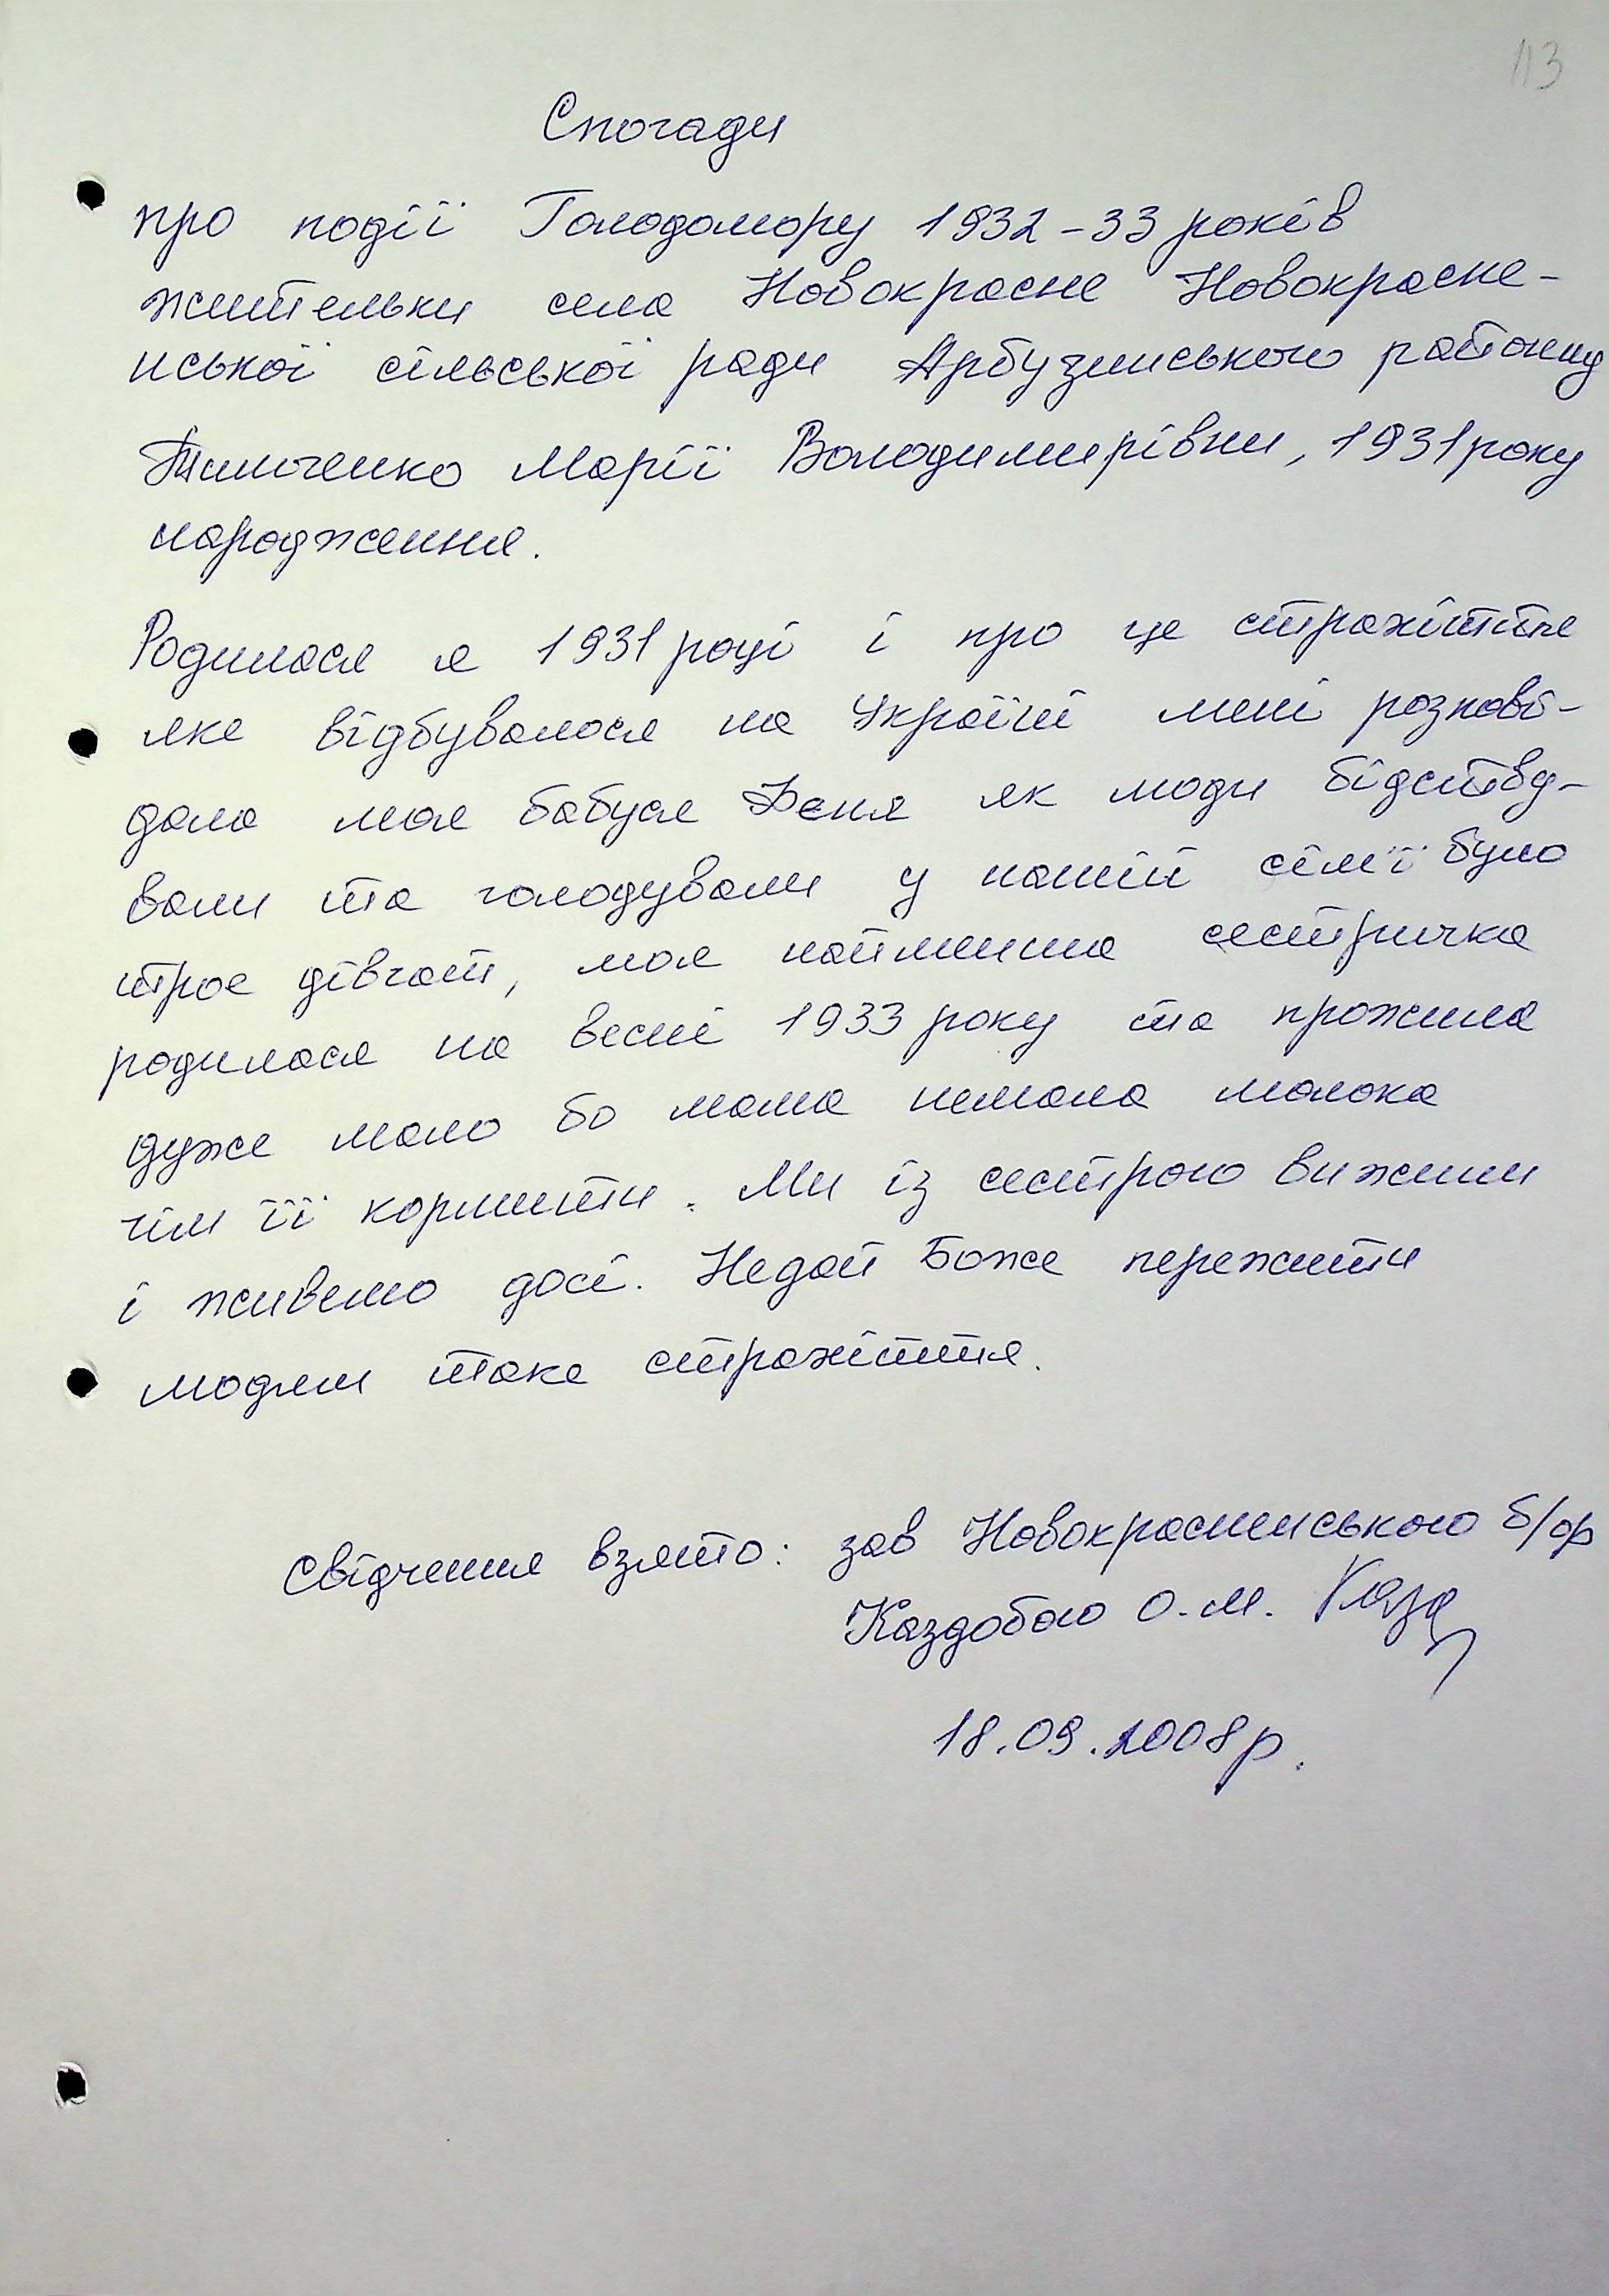 113
Спогади
про події Голодомору 1932-33 років
жительки села Новокрасне Новокрасне-
нської сільської ради Арбузинського району
Марії Володимирівни, 1931 року
народження.
Родилася я 1931 році і про це страхіття
яке відбувалося на Україні мені розпові-
дала моя бабуся Феня як люди бідству-
вали та голодували у нашій сім'ї було
троє дівчат, моя найменша сестричка
родилася на весні 1933 року та прожила
дуже мало бо мама немала молока
чім її кормити. Ми із сестрою вижили
і живемо досі. Недай Боже пережити
людям таке страхіття.
Свідчення взято: зав Новокрасненського б/ф
Каздобою О.М.
18.09.2008р.